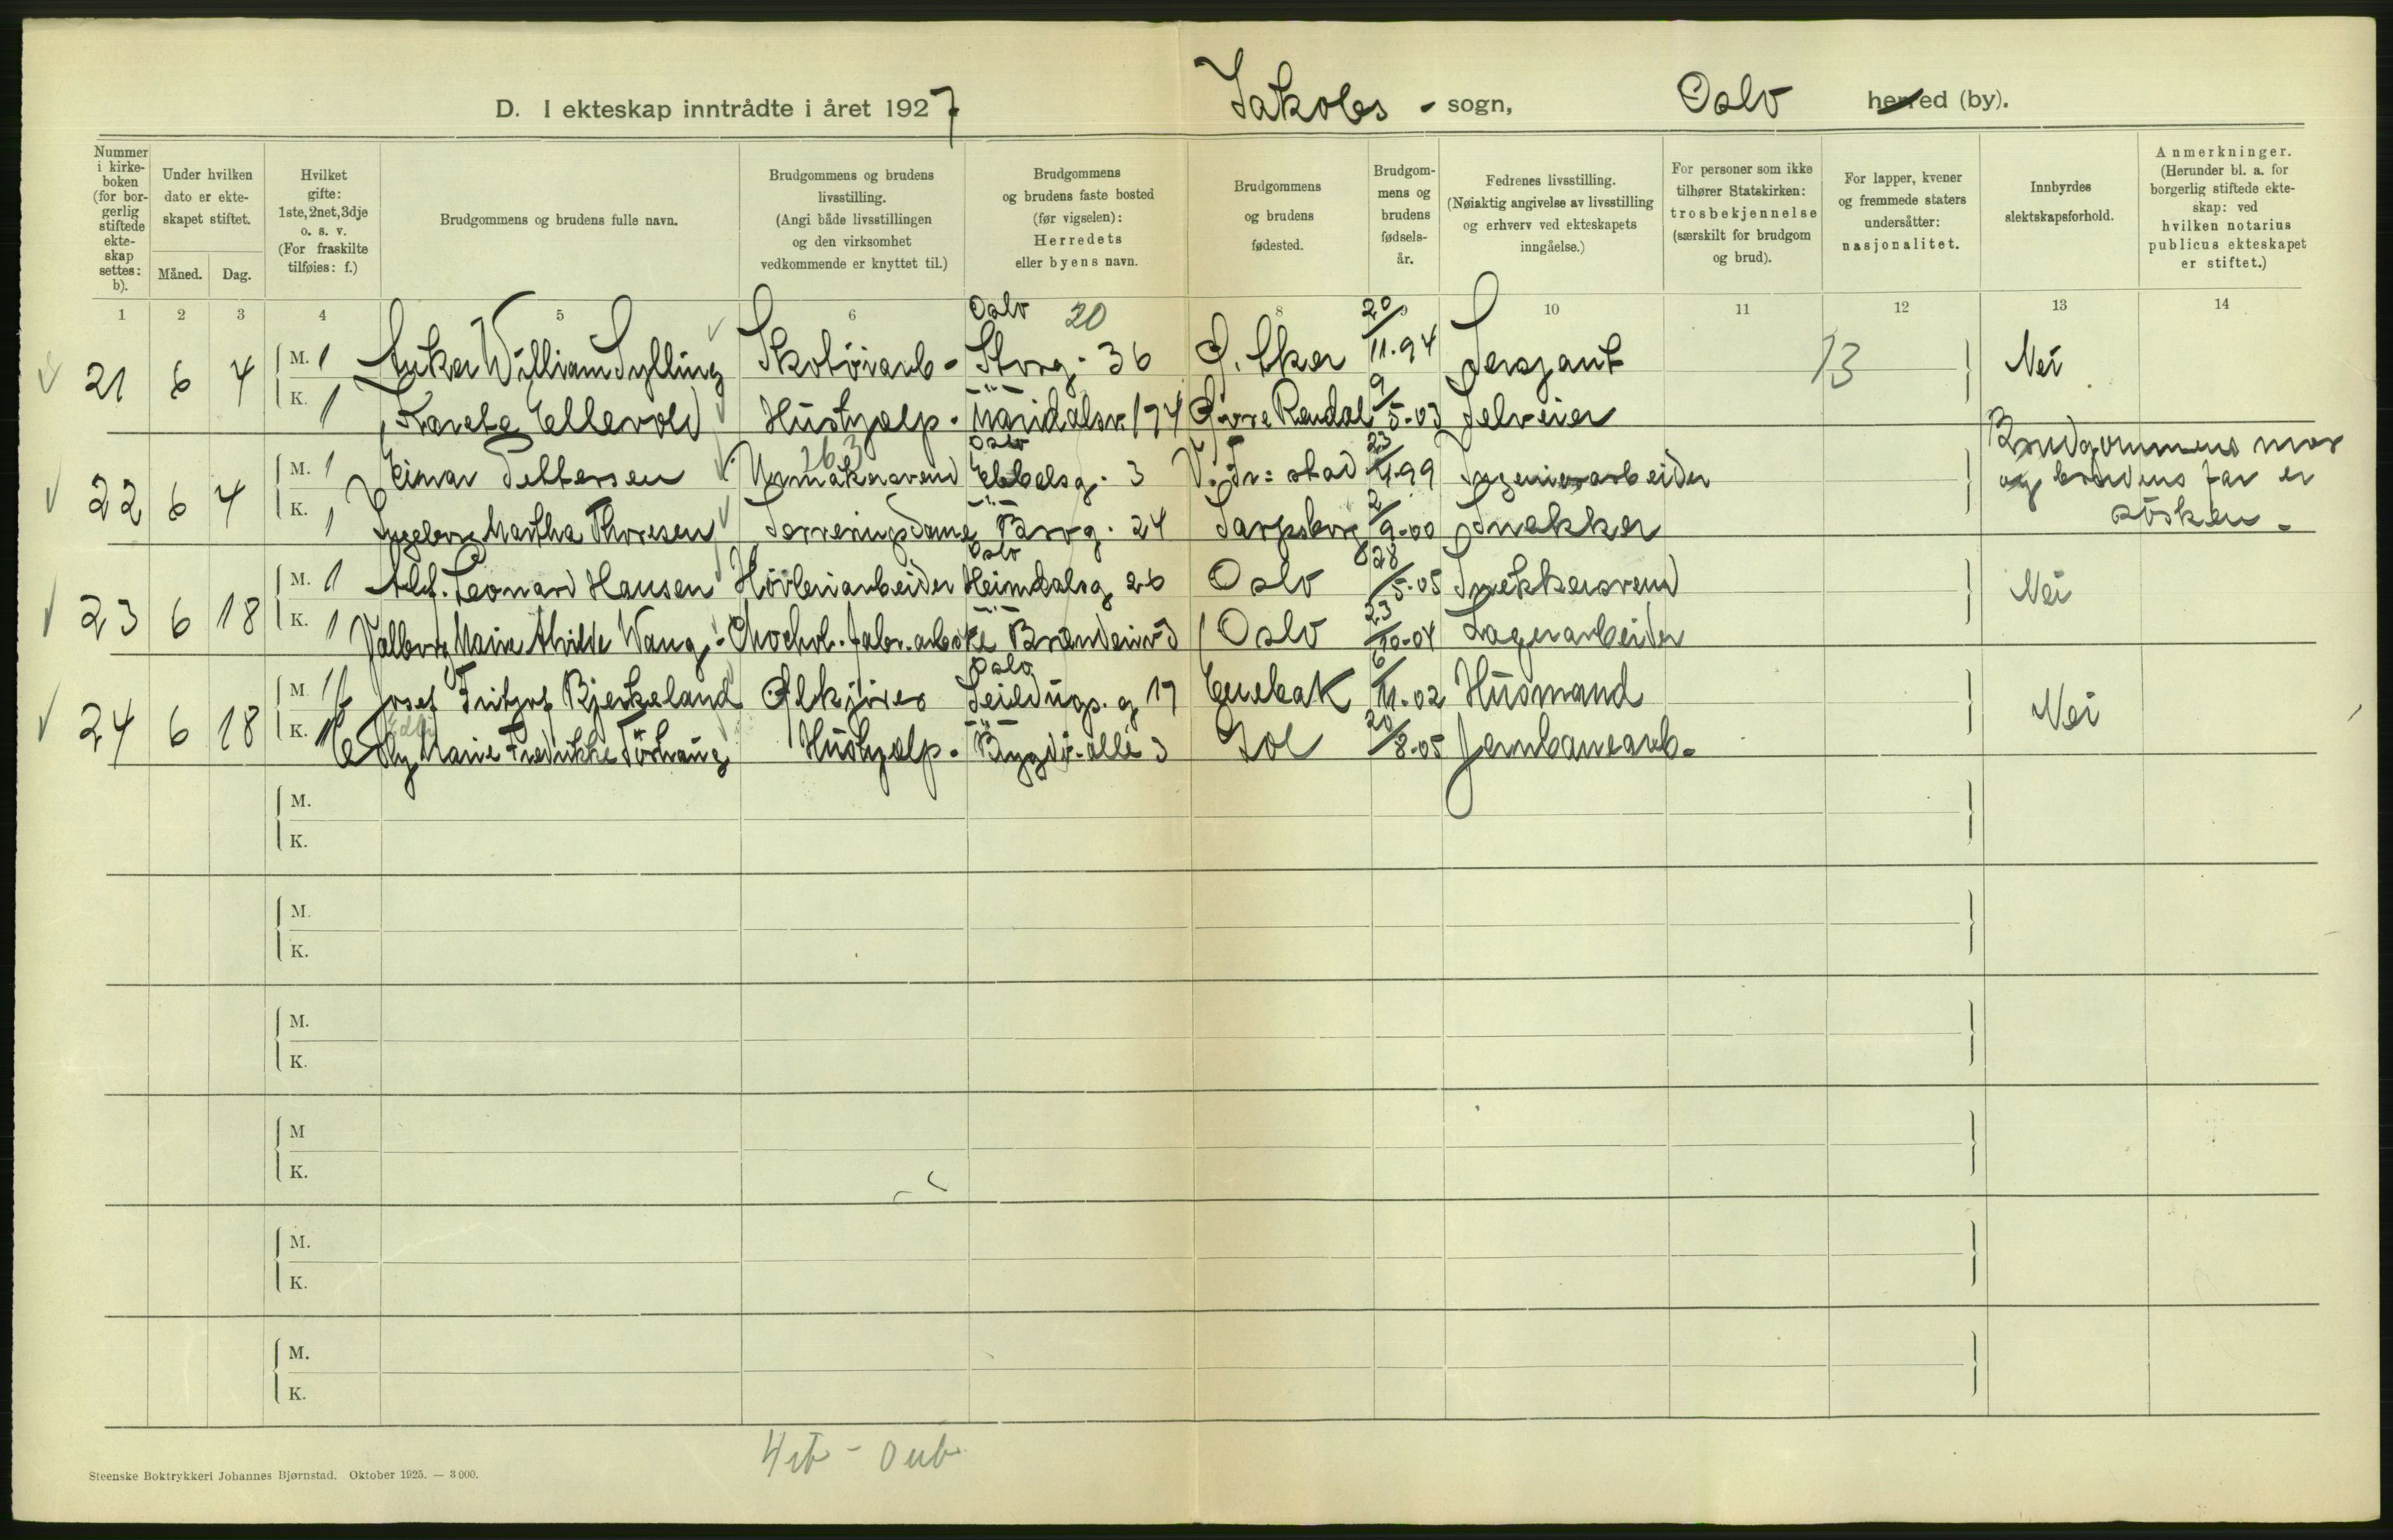 D. I ekteskap inntrådte i året 1927 Jakobs - sogn, Oslo herred (by).
Nummer i kirke-boken (for bor-gerlig stiftede ekte-skap settes: b).
Under hvilken dato er ekte-skapet stiftet.
Måned. Dag.
Hvilket gifte: 1ste, 2net, 3dje o. s. v. (For fraskilte tilføies: f.)
Brudgommens og brudens fulle navn.
Brudgommens og brudens livsstilling. (Angi både livsstillingen og den virksomhet vedkommende er knyttet til.)
Brudgommens og brudens faste bosted (før vigselen): Herredets eller byens navn.
Brudgommens og brudens fødested.
Brudgom-mens og brudens fødsels-år.
Fedrenes livsstilling. (Nøiaktig angivelse av livsstilling og erhverv ved ekteskapets inngåelse.)
For personer som ikke tilhører Statskirken: trosbekjennelse (særskilt for brudgom og brud).
For lapper, kvener og fremmede staters undersåtter: nasjonalitet.
Innbyrdes slektskapsforhold.
Anmerkninger. (Herunder bl. a. for borgerlig stiftede ekte-skap: ved hvilken notarius publicus ekteskapet er stiftet.)
1 2 3 4 5 6 8 10 11 12 13 14
Oslo 20
21 6 4 M. 1 William Sylling Skotöiarb - Storg. 36 Ö. Aker 20/11-94 Sersjant 13 Nei
K. 1 Karete Ellevold Hushjælp - Maridalsv. 174 Øvre Rendal 9/5-03 Selveier
Oslo
22 6 4 M. 1 Einar Pettersen Urmakersvend 3 V. Fr:stad 23/ -99 Brudgommens mor
K. 1 Ingeborg Martha Thoresen Serveringsdame Brog. 24 Sarpsborg 2/9-00 Snekker og brudens far er
søsken -
Oslo
23 6 18 M. 1 Alf. Leonard Hansen Hövleriarbeider Heimdalsg 26 Oslo 28/5-05 Snekkersvend Nei
K. 1 Valborg Marie Wang - Chocol. fabr. Oslo 23/10-04 Lagerarbeider
Oslo
24 6 18 M. 1 Josef Fritjof Bjerkeland Seildugs. g 17 Enebak 6/11-02 Husmand Nei
K. 1 Marie Fredrikke Hushjælp - Bygdö-alle 3 Gol 20/8-05 Jernbanearb.
M.
K.
M.
K.
M.
K.
M
K.
M.
K.
M.
K.
Steenske Boktrykkeri Johannes Bjørnstad. Oktober 1925. — 3000.